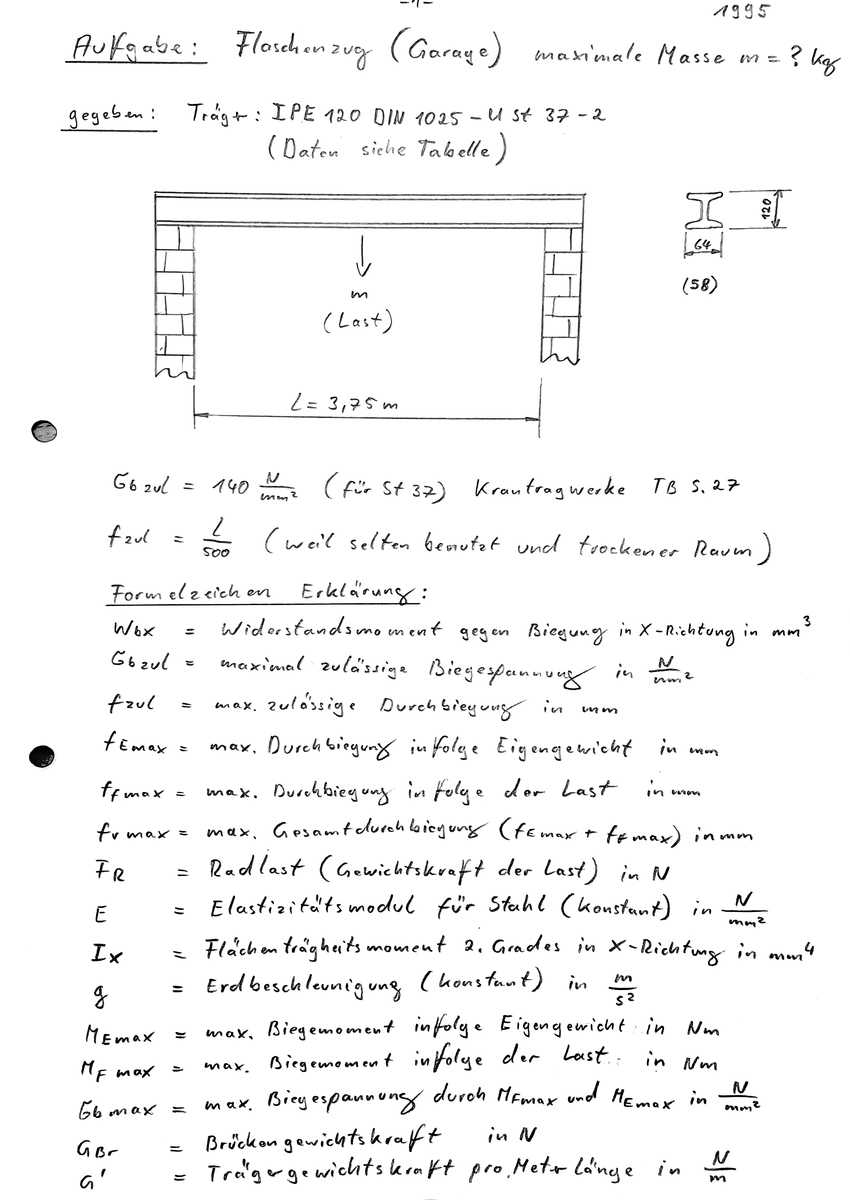 -1-
1995
Aufgabe: Flaschenzug (Garage) maximale Masse m = ? kg
gegeben: Träger: IPE 120 DIN 1025 - U St 37 - 2
(Daten siehe Tabelle)
120
64
(58)
m
(Last)
L = 3,75 m
σb zul = 140 N/mm² (für St 37) Krantragwerke TB S. 27
fzul = L/500 (weil selten benutzt und trockener Raum)
Formelzeichen Erklärung:
Wbx = Widerstandsmoment gegen Biegung in X-Richtung in mm³
σb zul = maximal zulässige Biegespannung in N/mm²
fzul = max. zulässige Durchbiegung in mm
fEmax = max. Durchbiegung infolge Eigengewicht in mm
fFmax = max. Durchbiegung infolge der Last in mm
fv max = max. Gesamtdurchbiegung (fEmax + fFmax) in mm
FR = Radlast (Gewichtskraft der Last) in N
E = Elastizitätsmodul für Stahl (konstant) in N/mm²
Ix = Flächenträgheitsmoment 2. Grades in X-Richtung in mm⁴
g = Erdbeschleunigung (konstant) in m/s²
MEmax = max. Biegemoment infolge Eigengewicht in Nm
MF max = max. Biegemoment infolge der Last in Nm
σb max = max. Biegespannung durch MFmax und MEmax in N/mm²
GBr = Brückengewichtskraft in N
G' = Trägergewichtskraft pro Meter Länge in N/m